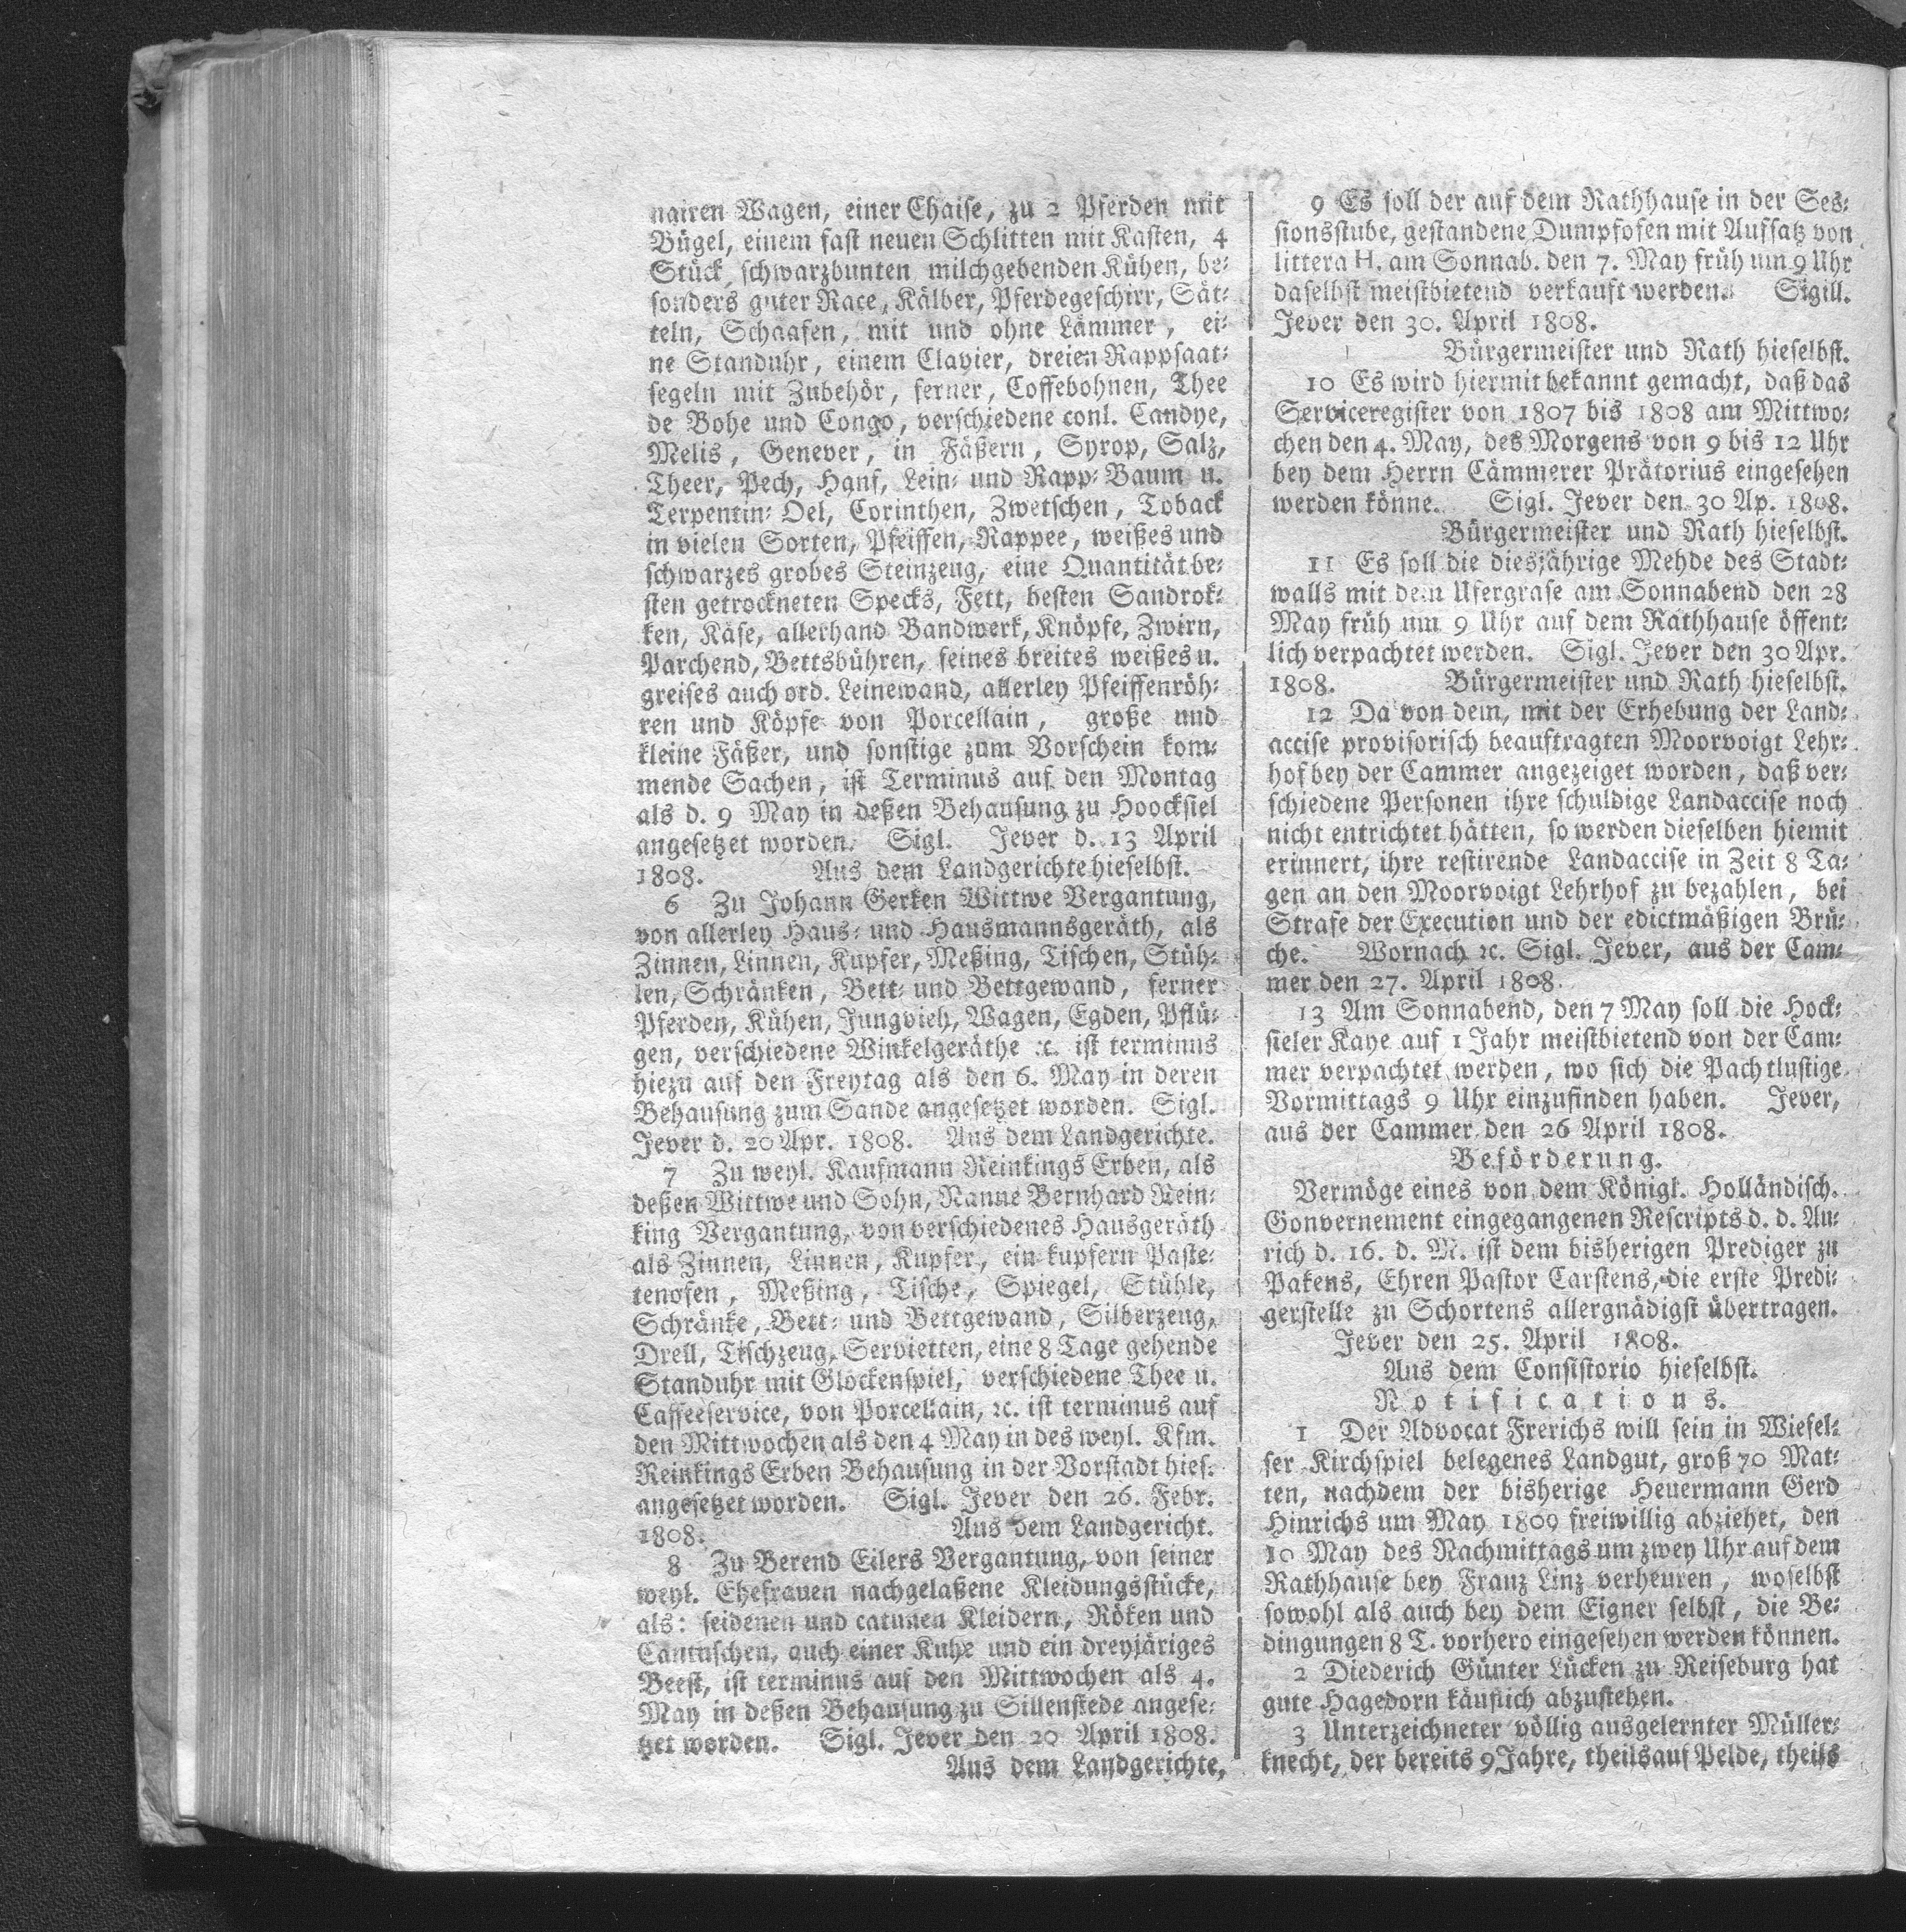 nairen Wagen, einer Chaise, zu 2 Pferden mit
Bügel, einem fast neuen Schlitten mit Kasten, 4
Stück schwarzbunten milchgebenden Kühen, be-
sonders guter Race, Kälber, Pferdegeschirr, Sät-
teln, Schaafen, mit und ohne Lämmer, ei-
ne Standuhr, einem Clavier, dreien Rappsaat-
segeln mit Zubehör, ferner, Coffebohnen, Thee
de Bohe und Congo, verschiedene conl. Candye,
Melis, Genever, in Fäßern, Syrop, Salz,
Theer, Pech, Hanf, Lein- und Rapp- Baum u.
Terpentin- Oel, Corinthen, Zwetschen, Toback
in vielen Sorten, Pfeiffen, Rappee, weißes und
schwarzes grobes Steinzeug, eine Quantität be-
sten getrockneten Specks, Fett, besten Sandrok-
ken, Käse, allerhand Bandwerk, Knöpfe, Zwirn,
Parchend, Bettsbühren, feines breites weißes u.
greises auch ord. Leinewand, allerley Pfeiffenröh-
ren und Köpfe von Porcellain, große und
kleine Fäßer, und sonstige zum Vorschein kom-
mende Sachen, ist Terminus auf den Montag
als d. 9 May in deßen Behausung zu Hoocksiel
angesetzet worden. Sigl. Jever d. 13 April
1808. Aus dem Landgerichte hieselbst.
6 Zu Johann Gerken Wittwe Vergantung,
von allerley Haus- und Hausmannsgeräth, als
Zinnen, Linnen, Kupfer, Meßing, Tischen, Stüh-
len, Schränken, Bett- und Bettgewand, ferner
Pferden, Kühen, Jungvieh, Wagen, Egden, Pflü-
gen, verschiedene Winkelgeräthe ꝛc. ist terminus
hiezu auf den Freytag als den 6. May in deren
Behausung zum Sande angesetzet worden. Sigl.
Jever d. 20 Apr. 1808. Aus dem Landgerichte.
7 Zu weyl. Kaufmann Reinkings Erben, als
deßen Wittwe und Sohn, Nanne Bernhard Rein-
king Vergantung, von verschiedenes Hausgeräth
als Zinnen, Linnen, Kupfer, ein kupfern Paste-
tenofen, Meßing, Tische, Spiegel, Stühle,
Schränke, Bett- und Bettgewand, Silberzeug,
Drell, Tischzeug, Servietten, eine 8 Tage gehende
Standuhr mit Glockenspiel, verschiedene Thee u.
Caffeeservice, von Porcellain, ꝛc. ist terminus auf
den Mittwochen als den 4 May in des weyl. Kfm.
Reinkings Erben Behausung in der Vorstadt hies.
angesetzet worden. Sigl. Jever den 26. Febr.
1808. Aus dem Landgericht.
8 Zu Berend Eilers Vergantung, von seiner
weyl. Ehefrauen nachgelaßene Kleidungsstücke,
als: seidenen und catunen Kleidern, Röken und
Cantuschen, auch einer Kuhe und ein dreyjäriges
Beest, ist terminus auf den Mittwochen als 4.
May in deßen Behausung zu Sillenstede angese-
tzet worden. Sigl. Jever den 20 April 1808.
Aus dem Landgerichte,
9 Es soll der auf dem Rathhause in der Ses-
sionsstube, gestandene Dumpfofen mit Aufsatz von
littera H. am Sonnab. den 7. May früh um 9 Uhr
daselbst meistbietend verkauft werden. Sigill.
Jever den 30. April 1808.
Bürgermeister und Rath hieselbst.
10 Es wird hiermit bekannt gemacht, daß das
Serviceregister von 1807 bis 1808 am Mittwo-
chen den 4. May, des Morgens von 9 bis 12 Uhr
bey dem Herrn Cämmerer Prätorius eingesehen
werden könne. Sigl. Jever den 30 Ap. 1808.
Bürgermeister und Rath hieselbst.
11 Es soll die diesjährige Mehde des Stadt-
walls mit dem Ufergrase am Sonnabend den 28
May früh um 9 Uhr auf dem Rathhause öffent-
lich verpachtet werden. Sigl. Jever den 30 Apr.
1808. Bürgermeister und Rath hieselbst.
12 Da von dem, mit der Erhebung der Land-
accise provisorisch beauftragten Moorvoigt Lehr-
hof bey der Cammer angezeiget worden, daß ver-
schiedene Personen ihre schuldige Landaccise noch
nicht entrichtet hätten, so werden dieselben hiemit
erinnert, ihre restirende Landaccise in Zeit 8 Ta-
gen an den Moorvoigt Lehrhof zu bezahlen, bei
Strafe der Execution und der edictmäßigen Brü-
che. Wornach ꝛc. Sigl. Jever, aus der Cam-
mer den 27. April 1808.
13 Am Sonnabend, den 7 May soll die Hock-
sieler Kaye auf 1 Jahr meistbietend von der Cam-
mer verpachtet werden, wo sich die Pachtlustige
Vormittags 9 Uhr einzufinden haben. Jever,
aus der Cammer den 26 April 1808.
Beförderung.
Vermöge eines von dem Königl. Holländisch.
Gonvernement eingegangenen Rescripts d. d. Au-
rich d. 16. d. M. ist dem bisherigen Prediger zu
Pakens, Ehren Pastor Carstens, die erste Predi-
gerstelle zu Schortens allergnädigst übertragen.
Jever den 25. April 1808.
Aus dem Consistorio hieselbst.
Notifications.
1 Der Advocat Frerichs will sein in Wiefel-
ser Kirchspiel belegenes Landgut, groß 70 Mat-
ten, nachdem der bisherige Heuermann Gerd
Hinrichs um May 1809 freiwillig abziehet, den
10 May des Nachmittags um zwey Uhr auf dem
Rathhause bey Franz Linz verheuren, woselbst
sowohl als auch bey dem Eigner selbst, die Be-
dingungen 8 T. vorhero eingesehen werden können.
2 Diederich Günter Lücken zu Reiseburg hat
gute Hagedorn käuflich abzustehen.
3 Unterzeichneter völlig ausgelernter Müller-
knecht, der bereits 9 Jahre, theils auf Pelde, theils